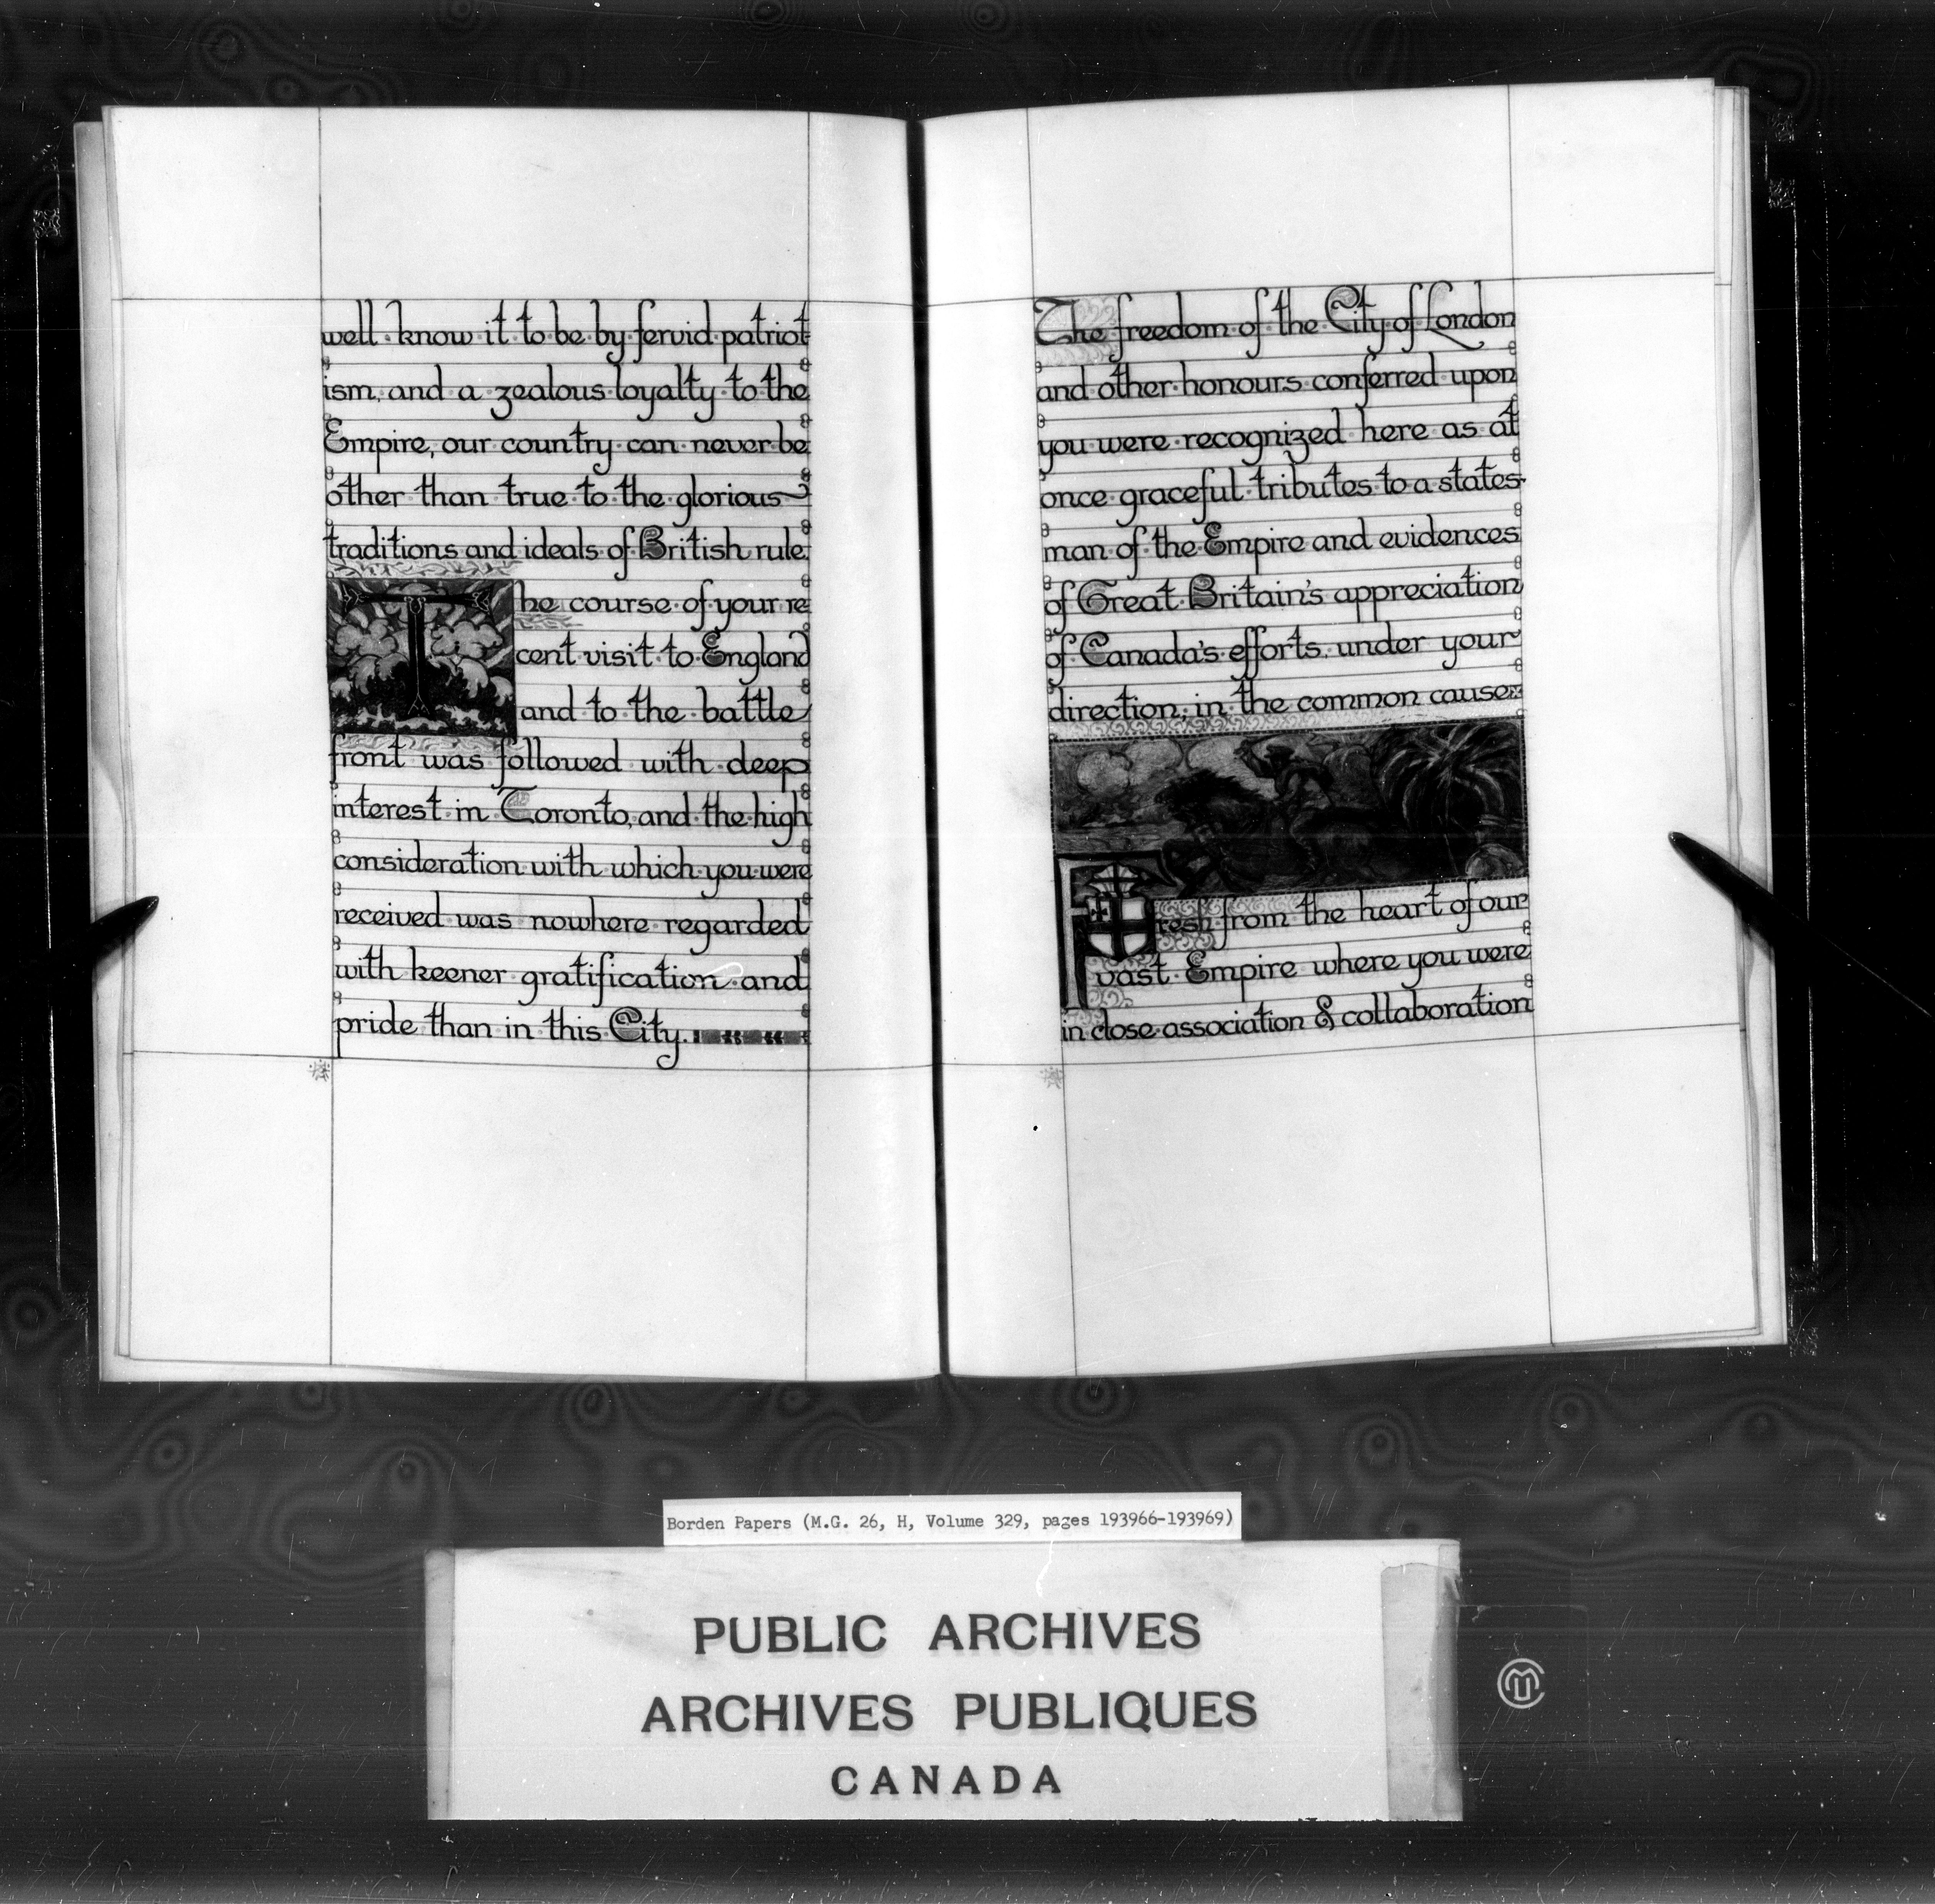 well know it to be by fervid patriot
ism, and a zealous loyalty to the
Empire, our country can never be
other than true to the glorious
traditions and ideals of British rule.
The course of your re
cent visit to England
and to the battle
front was followed with deep
interest in Toronto, and the high
consideration with which you were
received was nowhere regarded
with keener gratification and
pride than in this City.
The freedom of the City of London
and other honours conferred upon
you were recognized here as at
once graceful tributes to a states-
man of the Empire and evidences
of Great Britain's appreciation
of Canada's efforts, under your
direction, in the common cause
Fresh from the heart of our
vast Empire where you were
in close association & collaboration
Borden Papers (M.G. 26, H, Volume 329, pages 193966-193969)
PUBLIC ARCHIVES
ARCHIVES PUBLIQUES
CANADA